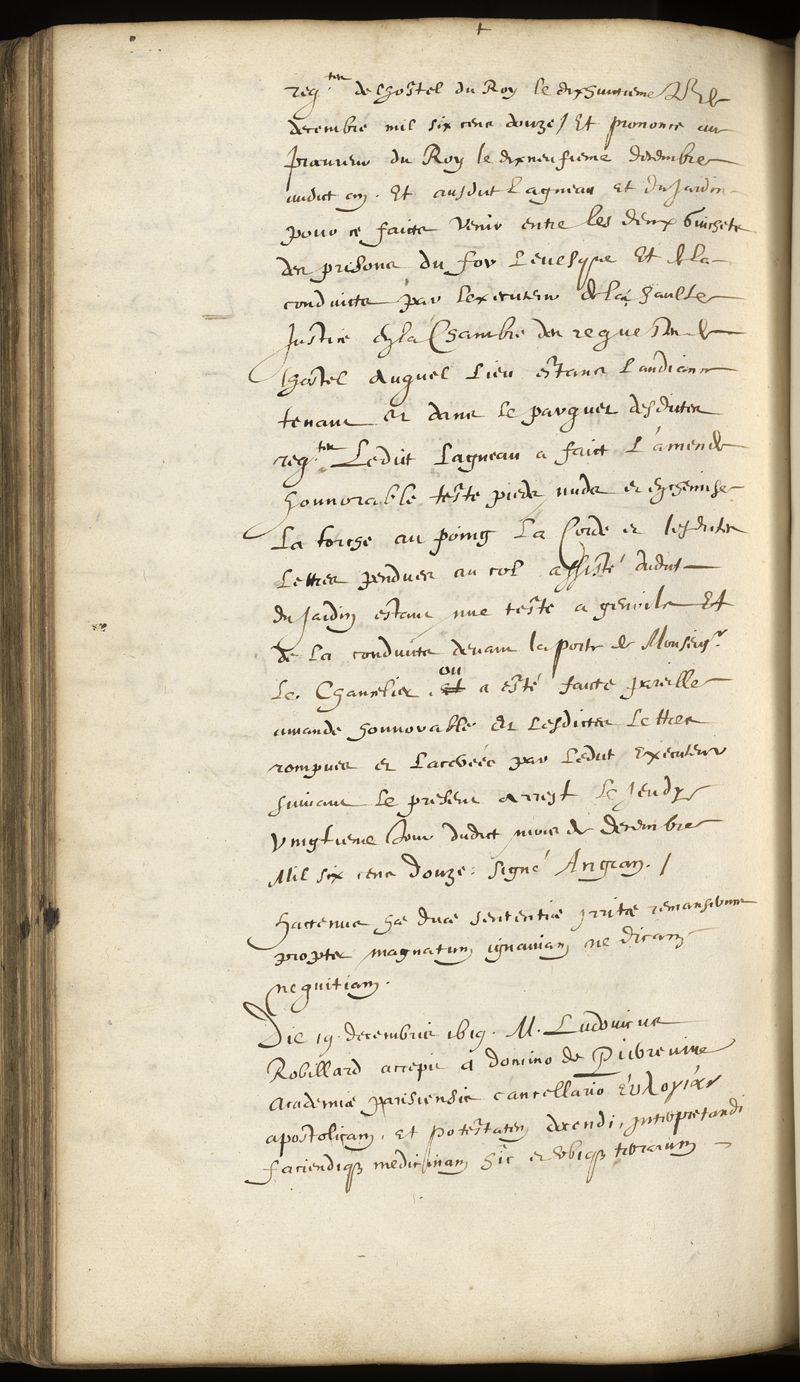 reg.^tes de l'hostel du Roy le dixhuictieme
decembre mil six cens douze / Et prononcé au
procureur du Roy le dixneufieme decembre
audict an. Et ausdit Lagneau et du Jardin
pour ce faicts venir entre les deux Guichets
des prisons du for L'evesque et de la
conduicts par lexecuteur de la haulte
Justice en la Chambre des requestes de
l'hostel Auquel Lieu estans Laudiance
tenant et dans le parquet desdites
reg.^tes Ledit Lagneau a faict L'amende
honnorable teste pieds nuds et en chemise
La torche au poing La Corde et lesdites
Lettres pendues au col assisté dudit
du Jardin estant nue teste a genoils Et
de La conduicts devant la porte de Monseig.^r
Le Chancelier, ou a esté faicte pareille
amande honnorable et Lesdictes Lettres
rompues et Lacerées par Ledit Executeur
suivant le present arrest le Jeudy
vingtieme Jour dudict mois de decembre
Mil six cens douze: signé Angran. /
Hactenus hæ duæ sententiæ irritæ remanserunt
propter magnatum ignaviam ne dicam
nequitiam.
Die 19. decembris 1619. M. Ludovicus
Robillard accepit à domino de Pierrevive
Academiæ parisiensis cancellario εὐλογίαν
apostolicam, et potestatem docendi, interpretandi
faciendiq3 medicinam hic et ubiq3 terrarum